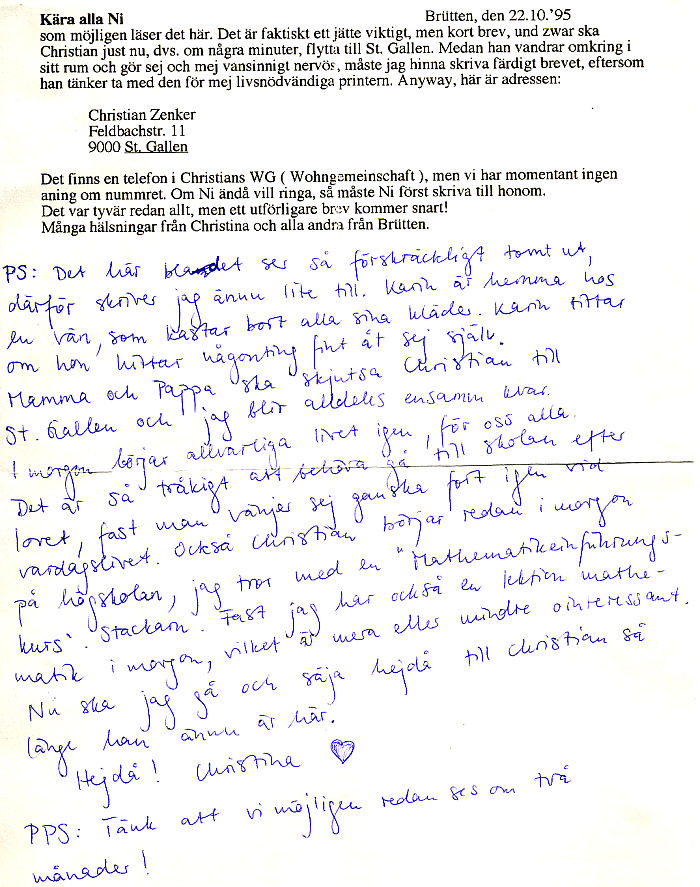 Kära alla Ni Brütten, den 22.10.'95
som möjligen läser det här. Det är faktiskt ett jätte viktigt, men kort brev, und zwar ska
Christian just nu, dvs. om några minuter, flytta till St. Gallen. Medan han vandrar omkring i
sitt rum och gör sej och mej vansinnigt nervös, måste jag hinna skriva färdigt brevet, eftersom
han tänker ta med den för mej livsnödvändiga printern. Anyway, här är adressen:
Christian Zenker
Feldbachstr. 11
9000 St. Gallen
Det finns en telefon i Christians WG ( Wohngemeinschaft ), men vi har momentant ingen
aning om nummret. Om Ni ändå vill ringa, så måste Ni först skriva till honom.
Det var tyvär redan allt, men ett utförligare brev kommer snart!
Många hälsningar från Christina och alla andra från Brütten.
PS: Det här bladet ser så förskräckligt tomt ut,
därför skriver jag ännu lite till. Karin är hemma hos
en vän, som kastar bort alla sina kläder. Karin tittar
om hon hittar någonting fint åt sej själv.
Mamma och Pappa ska skjutsa Christian till
St. Gallen och jag blir alldeles ensamm kvar.
I morgon börjar allvarliga livet igen, för oss alla.
Det är så tråkigt att behöva gå till skolan efter
lovet, fast man vänjer sej ganska fort igen vid
vardagslivet. Också Christian börjar redan i morgon
på högskolan, jag tror med en "Mathematikeinführungs-
kurs". Stackarn. Fast jag har också en lektion mathe-
matik i morgon, vilket är mera elles mindre ointeressant.
Nu ska jag gå och säja hejdå till Christian så
länge han ännu är här.
Hejdå! Christina ♡
PPS: Tänk att vi möjligen redan ses om två
månader!